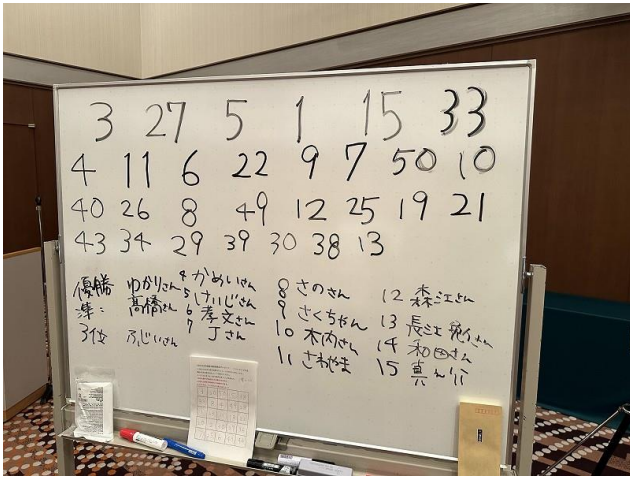 3 27 5 1 15 33
4 11 6 22 9 7 50 10
40 26 8 49 12 25 19 21
43 34 29 39 30 38 13
優勝 ゆかりさん
準: 髙橋さん
3位 ふじいさん
4 かめいさん
5 けいじさん
6 孝文さん
7 丁さん
8 さのさん
9 さくちゃん
10 木内さん
11 さわやま
12 森江さん
13 長江 さん
14 和田さん
15 真